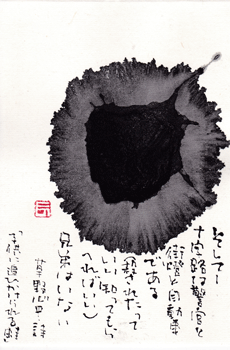 そして
十字路は警官と
街燈と自動車
である
（殺されたって
いい知ってもら
へればいい）
兄弟はいない
草野心平・詩
「子供に追ひかけられる蛙」